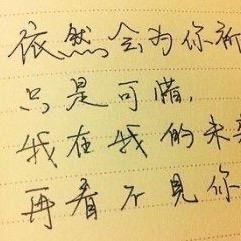 依然会为你祈
只是可惜,
我在我的未来
再看不見你